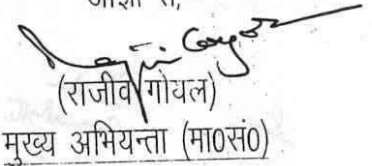 आज्ञा से,
(राजीव गोयल)
मुख्य अभियन्ता (मा0सं0)